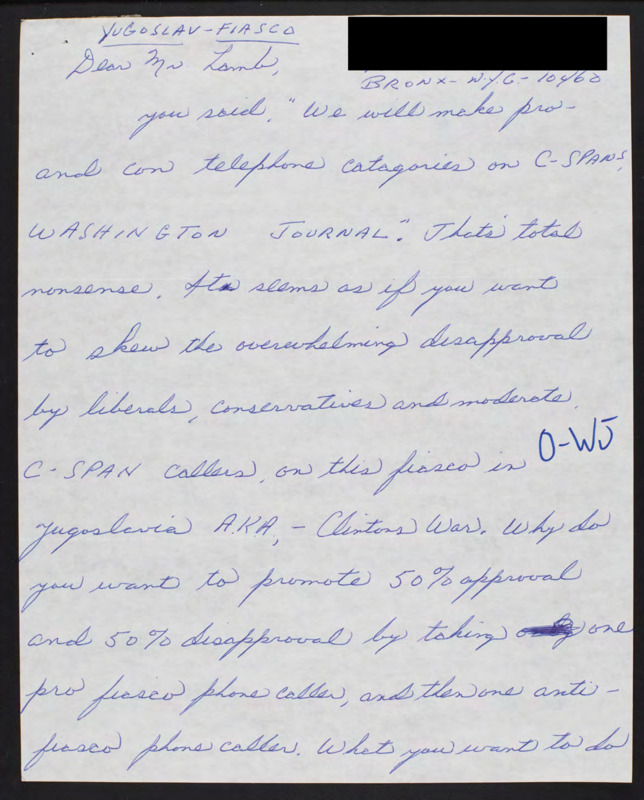 YUGOSLAV-FIASCO
Dear Mr Lamb,
BRONX-N.Y.C-10460
you said, "We will make pro-
and con telephone catagories on C-SPANS,
WASHINGTON JOURNAL". Thats total
nonsense. Its seems as if you want
to skew the overwhelming disapproval
by liberals, conservatives and moderate
C-SPAN callers, on this fiasco in
O-WJ
Yugoslavia A.K.A, - Clintons War. Why do
you want to promote 50% approval
and 50% disapproval by taking one
pro fiasco phone caller, and then one anti-
fiasco phone caller. What you want to do